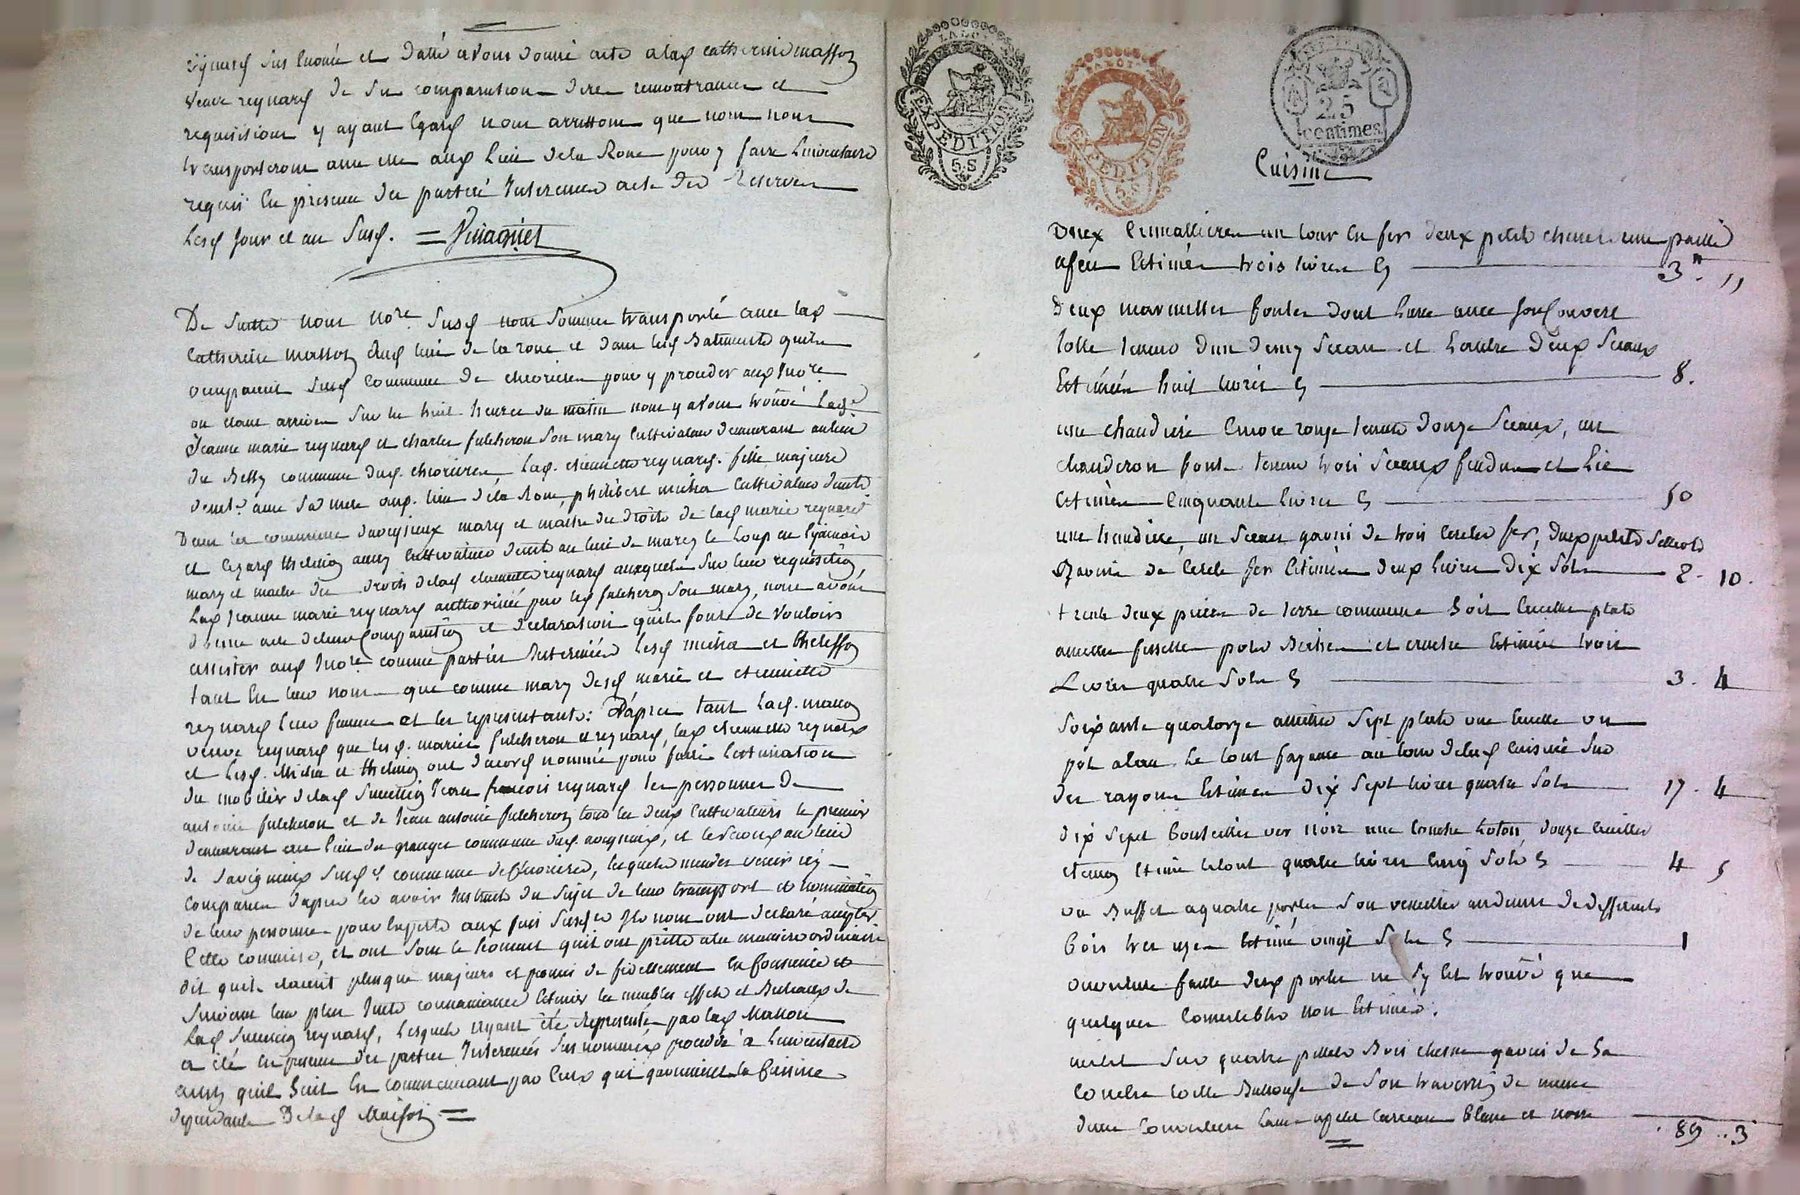 reynard sus énoncé et datté avons donné acte a lad catherine masson
veuve reynard de sa comparution dire remontrances et
requisitions y ayant egard nous arrettons que nous nous
transporterons avec elle aud lieu de la Roue pour y faire Linventaire
requis En présence des parties Interessées acte des Reserves
Lesd Jour et an Susd.
De Suitte nous nore. Susd nous sommes transporté avec lad
Catherine masson aud lieu de la roue et dans les Batiments quils
occupoient Susd commune de chevrieres pour y proceder aud Inre
ou étant arrivés Sur les huit heures du matin nous y avons trouvé Lade
Jeanne marie reynard et charles fulcheron Son mary Cultivateur demeurant au lieu
du Betty commune dud. chevrieres Lad. etiennette reynard. fille majeure
demte. avec Sa mere aud. lieu de la Roue, philibert micha Cultivateur demt
Dans la commune daveyzieux mary et maitre des droits de lad marie reynard
et aussi cultivateur demt au lieu de marcy le Loup en
mary et maitre des droits de lad etiennette reynard auxquels Sur leur requisition,
Lad Jeanne marie reynard authorisée par led fulcheron Son mary, nous avons
donné acte de leur Comparution et declaration quils font de Vouloir
assister aud Inre comme parties Interessées Lesd micha et
tant En leur nom que comme mary desd marie et etiennette
reynard leur femme et les representants: D'apres tant Lad. masson
veuve reynard que lesd. mariés fulcheron et reynard, lad etiennette reynard
et Lesd. Micha et ont d'accord nommés pour faire Lestimation
du mobilier delad Succession Jean francois reynard les personnes de
antoine fulcheron et de Jean antoine fulcheron tous les deux Cultivateurs le premier
demeurant au lieu des granges commune dud. et le Second au lieu
de Savigneux Susd. commune de Chevrieres, lesquels mandés venir icy
comparus Dapres les avoir Instruit du Sujet de leur transport et nomination
de leur personne pour Experts aux fins Susd Ils nous ont declaré accepter
Cette commission, et ont Sous le Serment quils ont pretté a la maniere ordinaire
dit quils étoient plus que majeurs et promis de fidellement En Conscience et
Suivant leur plus Juste connaissance Estimer les meubles effets et Bestiaux de
Lad Succession reynard, Lesquels ayant été Representés par lad Masson
a été En presence des parties Interessées Sus nommées procedé à Linventaire
ainsi quil Suit En commencant par Ceux qui garnissent la Cuisine
dependante De lad Maison =
LA LOI
EXPEDITION
5.S
EXPEDITION
5.S
25
centimes
Cuisine
Deux Cremallieres un tour En fer deux petits chenets une paille
a feu Estimés trois livres 3" "
Deux marmittes fontes dont Lune avec Son Couvert
tolle tenant d'un demy Sceau et Lautre Deux Sceaux
Estimées huit livres 8.
une chaudiere Cuivre rouge tenant douze Sceaux, un
chauderon fonte tenant trois Sceaux fendu et Lié
Estimés Cinquante livres 50
une, un Sceau garni de trois Cercles fer, deux petits
garni de Cercle fer Estimés deux livres Dix Sols 2. 10.
trente deux pieces de terre commune Soit Ecuelle plats
assiettes fesselles pots Biches et cruches Estimés trois
Livres quatre Sols 3. 4
Soixante quatorze assiettes Sept plats une Ecuelle un
pot aleau Le tout fayance au tour delad Cuisine Sur
des rayons Estimés Dix Sept livres quatre Sols 17. 4
dix Sept Bouteilles ver noir une Couche laton douze Cuilliers
etaing Estimé le tout quatre livres Cinq Sols 4 5
un Buffet a quatre portes Son vessellier audessus de differents
Bois tres usés Estimé vingt Sols 1
ouverture faitte desd portes ne Sy Est trouvé que
quelques Comestibles non Estimés.
un lit Sur quatre pillets Bois chesne garni de Sa
Couetre toille Ballouffe de Son traversin de meme
dune Couverture Laine a petit Carreau Blanc et noir
89 .. 3